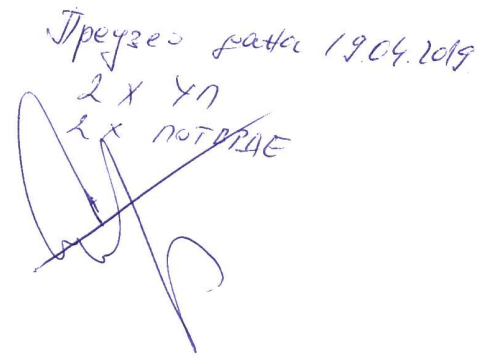 Преузео дана 19.04.2019
2 X УП
2 X ПОТВРДЕ